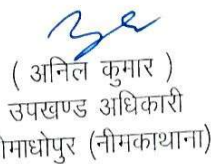 ( अनिल कुमार )
उपखण्ड अधिकारी
ीमाधोपुर (नीमकाथाना)